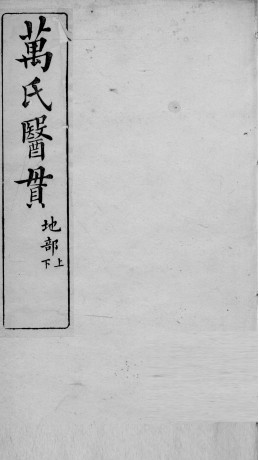 萬氏醫貫
地部上下